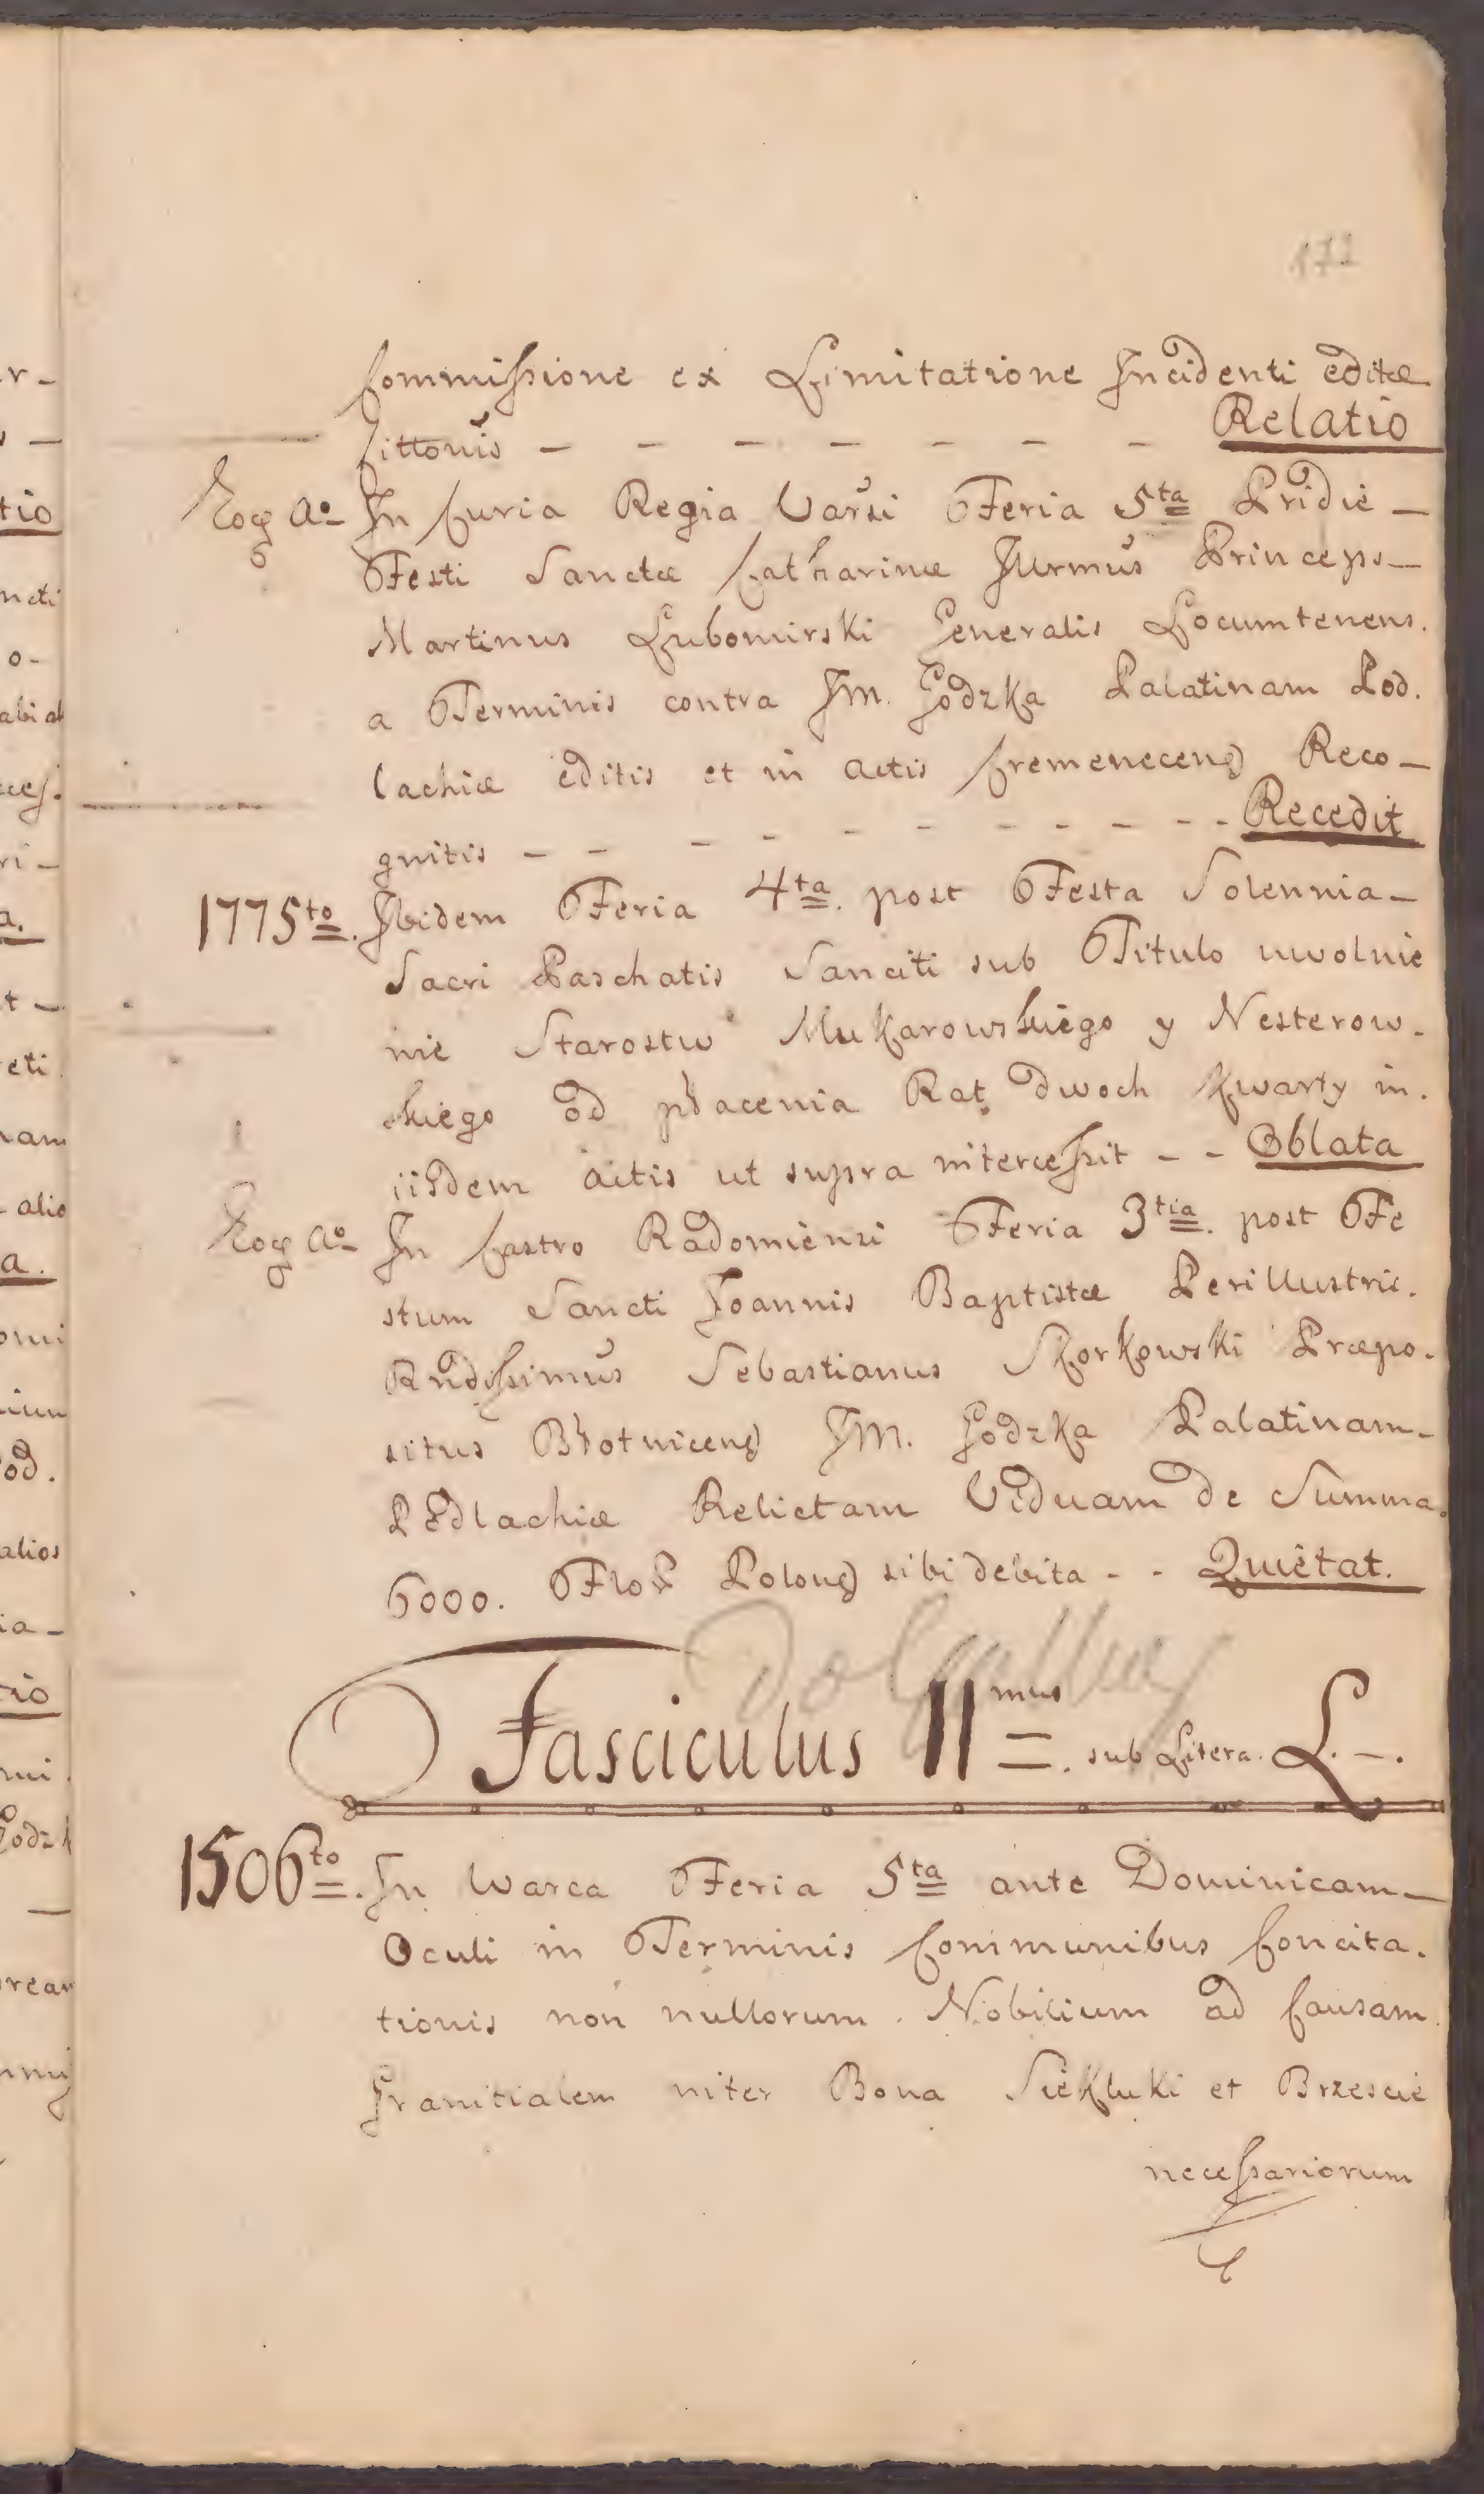 171
Commissione ex Limitatione Incidenti editæ
Cittonis - - - - - - - Relatio
Eog Ao In Curia Regia Varsi Feria 5ta Pridie -
Festi Sanctæ Catharinæ Illrmus Princeps -
Martinus Lubomirski Generalis Locumtenens.
a Terminis contra Jm. Godzka Palatinam Pod.
lachiæ editis et in actis Cremeneceng Reco -
gnitis - - - - - - - - - - Recedit
1775to. Ibidem Feria 4ta. post Festa Solennia -
Sacri Paschatis Sanciti sub Titulo uwolnie
nie Starostw Mukarowskiego y Nesterow.
skiego od płacenia Rat dwoch Kwarty in.
iisdem actis ut supra intercessit - - Oblata
Eog Ao In Castro Radomiensi Feria 3tia. post Fe
stum Sancti Joannis Baptistæ Perillustris.
Rndissimus Sebastianus Skorkowski Præpo.
situs Błotniceng Jm. Godzka Palatinam -
Podlachiæ Relictam Viduam de Summa.
6000. Flor Polong sibi debita - - Quietat.
Fasciculus IImus. sub Litera. L. -.
1506to. In Warca Feria 5ta ante Dominicam -
Oculi in Terminis Communibus Concita.
tionis non nullorum Nobilium ad Causam
Granitialem inter Bona Siekluki et Brzescie
necessariorum